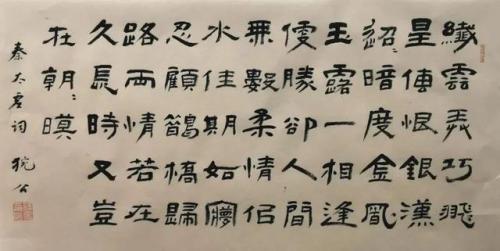 纖雲弄巧飛
星傳恨銀漢
迢々暗度金風
玉露一相逢
便勝卻人間
無數柔情似
水佳期如夢
忍顧鵲橋歸
路兩情若在
久長時又豈
在朝々暮
秦太虛詞 公